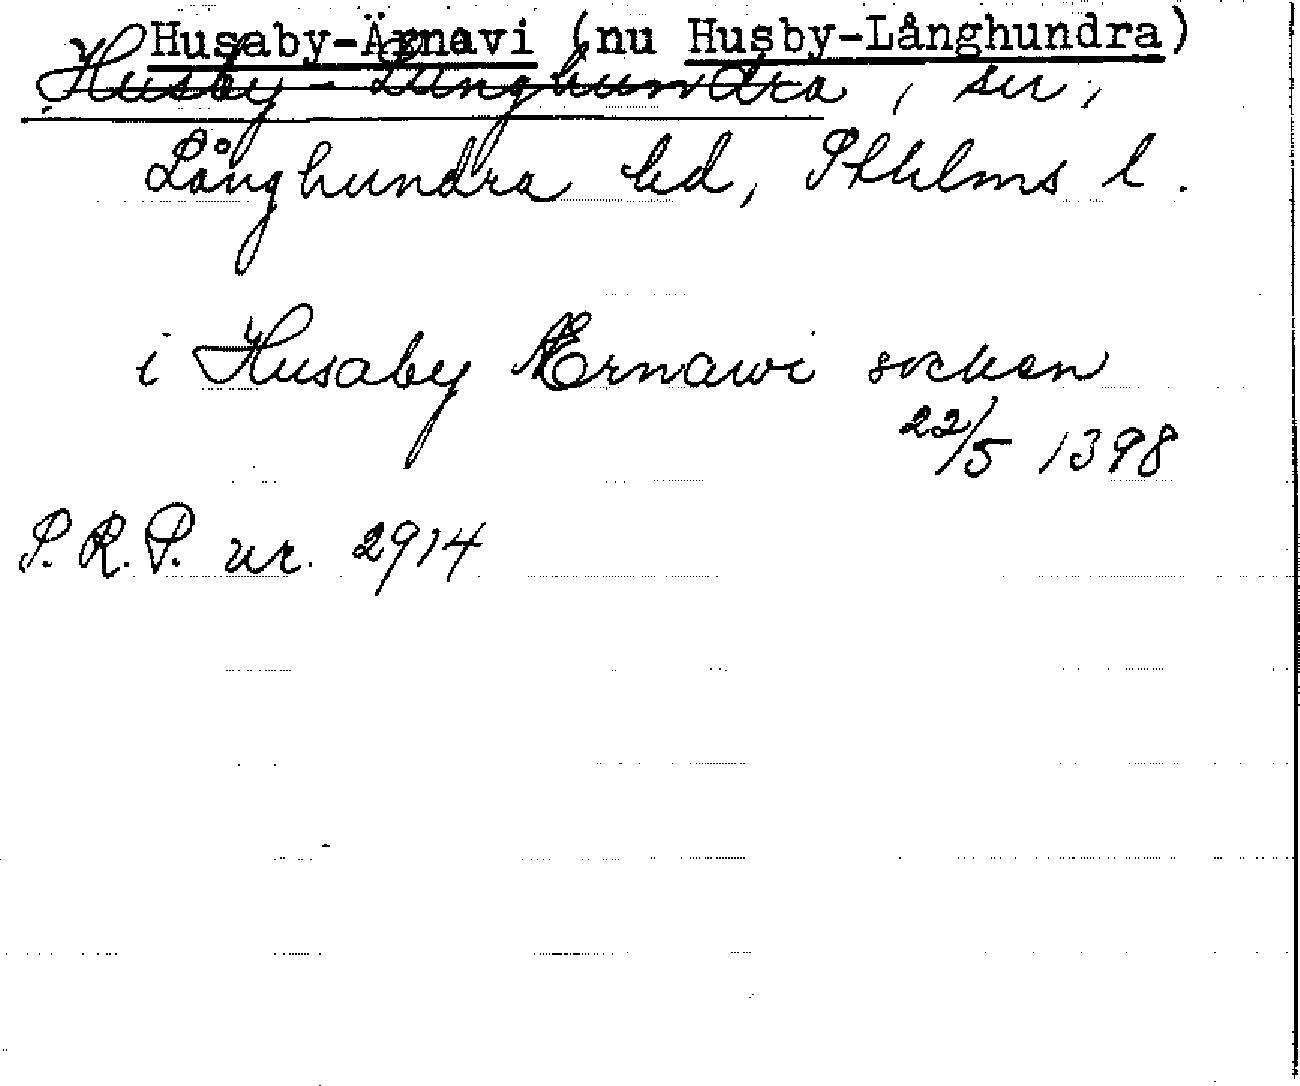 v Husaby-Ärnavi (nu Husby-Långhundra)
Husby-Långhundra, sn,
Långhundra hd, Sthlms l.
i Husaby Ærnawi socken
22/5 1398
P.R.P. nr. 2914